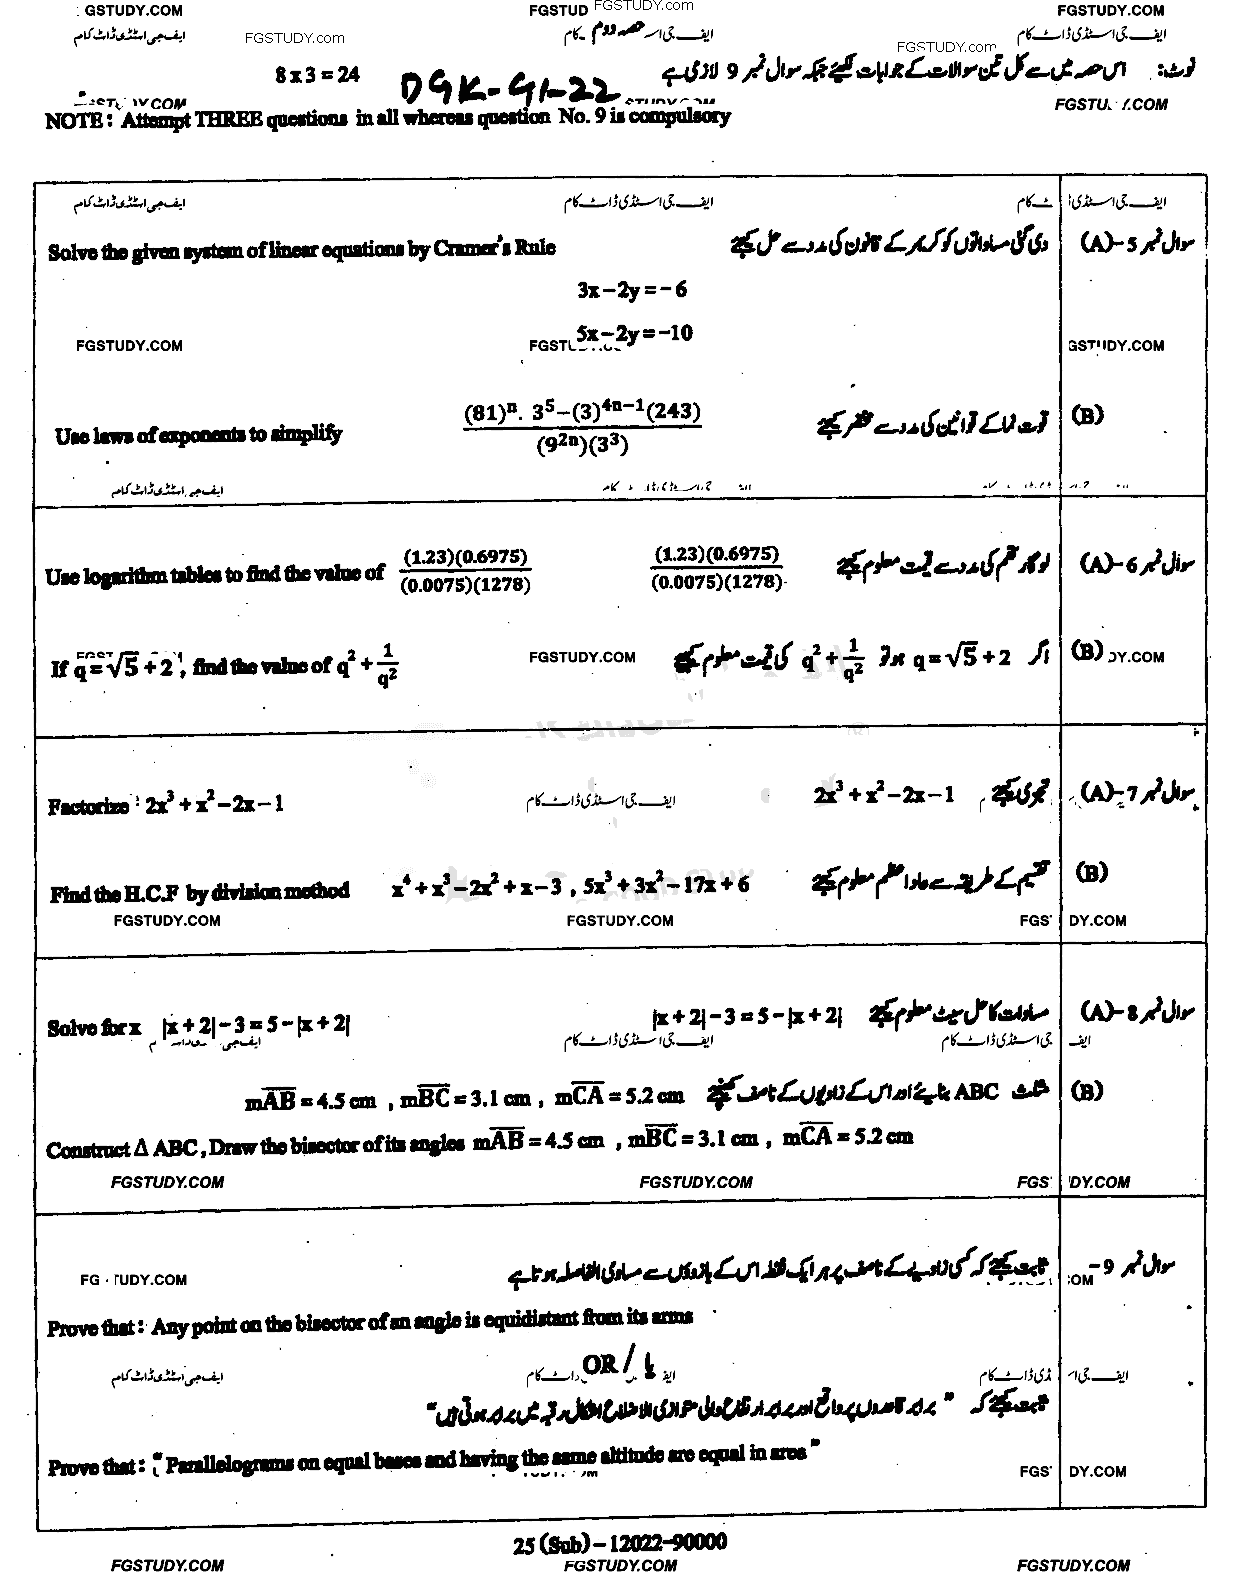 GSTUDY.COM FGSTUD FGSTUDY.com FGSTUDY.COM
ایف جی اسٹڈی ڈاٹ کام FGSTUDY.com ایف جی اس حصہ دوم کام ایف جی اسٹڈی ڈاٹ کام
FGSTUDY.com
8 x 3 = 24 نوٹ: اس حصہ میں سے کل تین سوالات کے جوابات لکھئے جبکہ سوال نمبر 9 لازمی ہے
DGK-G1-22
FGSTU .COM
NOTE : Attempt THREE questions in all whereas question No. 9 is compulsory
ایف جی اسٹڈی ڈاٹ کام ایف جی اسٹڈی ڈاٹ کام
سوال نمبر 5-(A) دی گئی مساواتوں کو کریمر کے قانون کی مدد سے حل کیجئے
Solve the given system of linear equations by Cramer's Rule
3x−2y = − 6
5x−2y = −10
FGSTUDY.COM GSTUDY.COM
(B) قوت نما کے قوانین کی مدد سے مختصر کیجئے
Use laws of exponents to simplify (81)ⁿ. 3⁵−(3)⁴ⁿ⁻¹(243) / (9²ⁿ)(3³)
ایف جی اسٹڈی ڈاٹ کام
سوال نمبر 6-(A) لوگارتھم کی مدد سے قیمت معلوم کیجئے (1.23)(0.6975) / (0.0075)(1278)
Use logarithm tables to find the value of (1.23)(0.6975) / (0.0075)(1278)
(B) اگر q = √5 + 2 ہو تو q² + 1/q² کی قیمت معلوم کیجئے
If q = √5 + 2 , find the value of q² + 1/q² FGSTUDY.COM DY.COM
سوال نمبر 7-(A) تجزی کیجئے 2x³ + x² − 2x − 1
Factorize : 2x³ + x² − 2x − 1 ایف جی اسٹڈی ڈاٹ کام
(B) تقسیم کے طریقہ سے عاد اعظم معلوم کیجئے
Find the H.C.F by division method x⁴ + x³ − 2x² + x − 3 , 5x³ + 3x² − 17x + 6
FGSTUDY.COM FGSTUDY.COM FGS DY.COM
سوال نمبر 8-(A) مساوات کا حل سیٹ معلوم کیجئے |x + 2| − 3 = 5 − |x + 2|
Solve for x |x + 2| − 3 = 5 − |x + 2|
ایف جی اسٹڈی ڈاٹ کام ایف جی اسٹڈی ڈاٹ کام
(B) مثلث ABC بنایئے اور اس کے زاویوں کے ناصف کھینچئے mAB = 4.5 cm , mBC = 3.1 cm , mCA = 5.2 cm
Construct Δ ABC , Draw the bisector of its angles mAB = 4.5 cm , mBC = 3.1 cm , mCA = 5.2 cm
FGSTUDY.COM FGSTUDY.COM FGS DY.COM
سوال نمبر 9- ثابت کیجئے کہ کسی زاویے کے ناصف پر ہر ایک نقطہ اس کے بازوؤں سے مساوی الفاصلہ ہوتا ہے
FG TUDY.COM COM
Prove that : Any point on the bisector of an angle is equidistant from its arms
OR / یا
ایف جی اسٹڈی ڈاٹ کام
ثابت کیجئے کہ " برابر قاعدوں پر واقع اور برابر ارتفاع والی متوازی الاضلاع اشکال رقبہ میں برابر ہوتی ہیں"
Prove that : " Parallelograms on equal bases and having the same altitude are equal in area "
FGS DY.COM
25 (Sub) – 12022–90000
FGSTUDY.COM FGSTUDY.COM FGSTUDY.COM